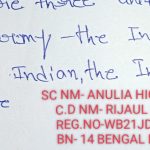 the three
my - the In
Indian, the I
SC NM- ANULIA HI
C.D NM- RIJAUL
REG.NO-WB21JD
BN- 14 BENGAL